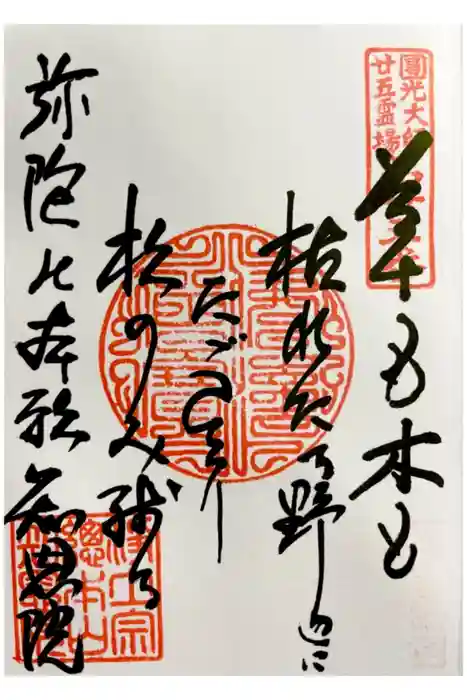 圓光大師
廿五霊場
草も木も
枯れたる野辺に
たゞひとり
松のみ残る
弥陀の本願 知恩院
浄土宗
總本山